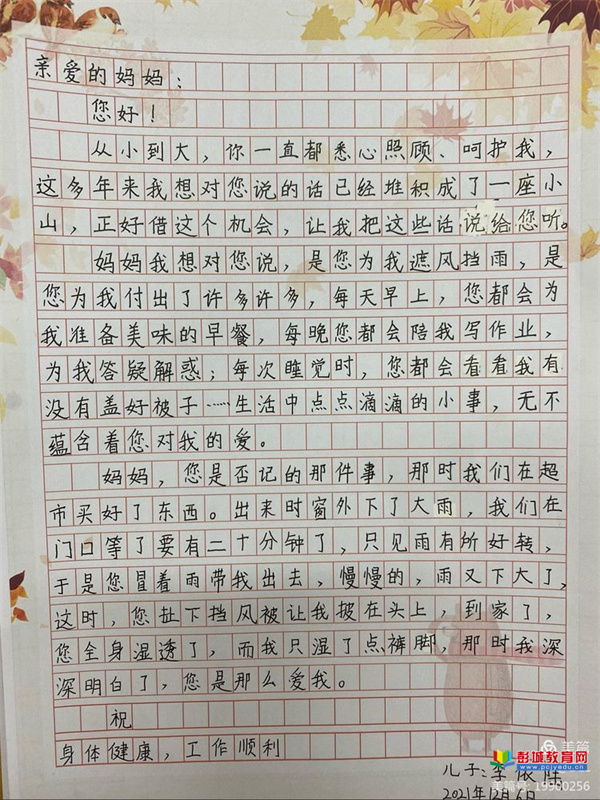 亲爱的妈妈：
您好！
从小到大，你一直都悉心照顾、呵护我，
这多年来我想对您说的话已经堆积成了一座小
山，正好借这个机会，让我把这些话说给您听。
妈妈我想对您说，是您为我遮风挡雨，是
您为我付出了许多许多，每天早上，您都会为
我准备美味的早餐，每晚您都会陪我写作业，
为我答疑解惑；每次睡觉时，您都会看看我有
没有盖好被子……生活中点点滴滴的小事，无不
蕴含着您对我的爱。
妈妈，您是否记的那件事，那时我们在超
市买好了东西。出来时窗外下了大雨，我们在
门口等了要有二十分钟了，只见雨有所好转，
于是您冒着雨带我出去，慢慢的，雨又下大了，
这时，您扯下挡风被让我披在头上，到家了，
您全身湿透了，而我只湿了点裤脚，那时我深
深明白了，您是那么爱我。
祝
身体健康，工作顺利
儿子：李依
2021年12月6日
美篇
彭城教育网
www.pcjyedu.cn
19960256